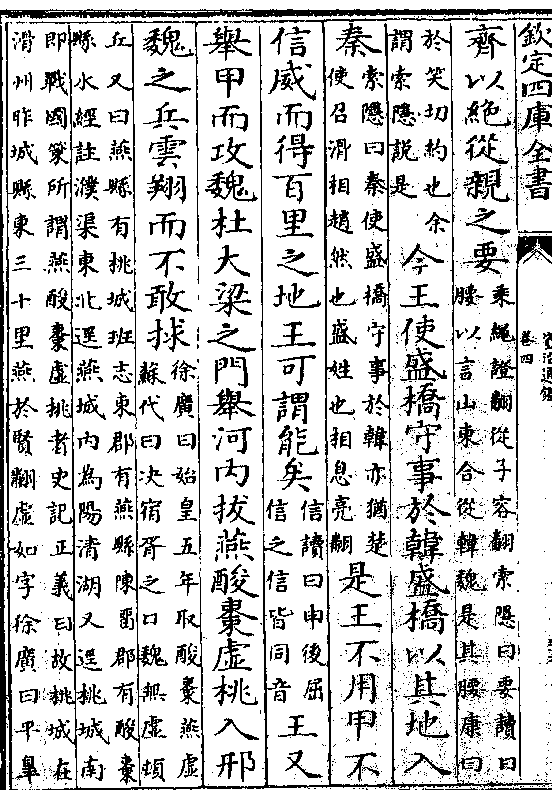 欽定四庫全書
資治通鑑
卷四
齊以絶從親之要乘繩證翻從子容翻索隱曰要讀曰腰以言山東合從韓魏是其腰康曰
於笑切約也余謂索隱説是今王使盛橋守事於韓盛橋以其地入
秦索隱曰秦使盛橋守事於韓亦猶楚使召滑相趙然也盛姓也相息亮翻是王不用甲不
信威而得百里之地王可謂能矣信讀曰申後屈信之信皆同音王又
舉甲而攻魏杜大梁之門舉河内拔燕酸棗虛桃入邢
魏之兵雲翔而不敢捄徐廣曰始皇五年取酸棗燕虛蘇代曰决宿胥之口魏無虛頓
丘又曰燕縣有桃城班志東郡有燕縣陳留郡有酸棗縣水經註濮渠東北逕燕城内為陽清湖又逕桃城南
即戰國策所謂燕酸棗虛桃者史記正義曰故桃城在滑州胙城縣東三十里燕於賢翻虛如字徐廣曰平臯